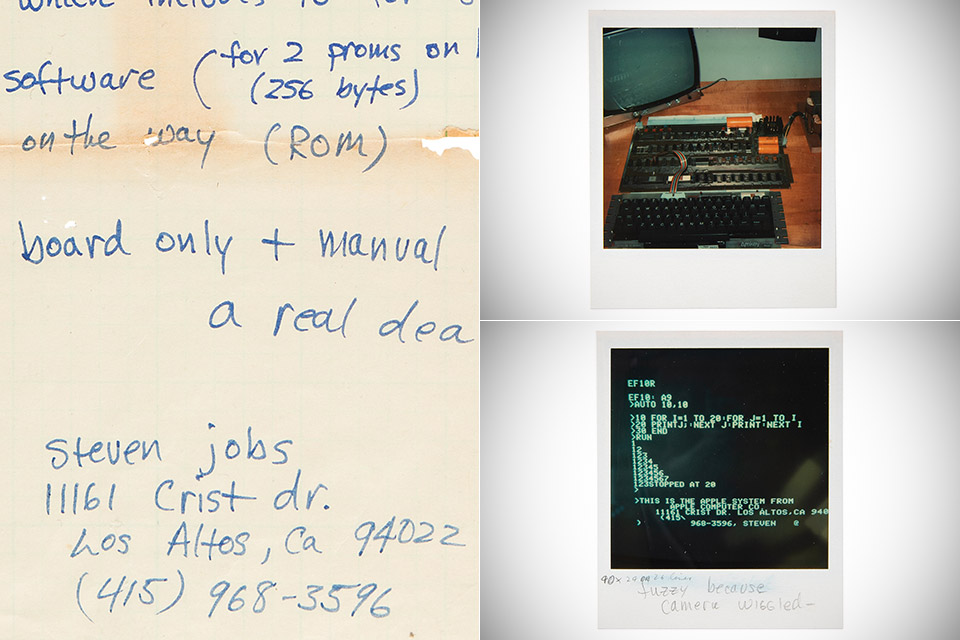 which includes
software (for 2 proms on
(256 bytes)
on the way (ROM)
board only + manual
a real dea
steven jobs
11161 Crist dr.
Los Altos, Ca 94022
(415) 968-3596
EF10R
EF10: A9
>AUTO 10,10
>10 FOR I=1 TO 20:FOR J=1 TO I
>20 PRINTJ;:NEXT J:PRINT:NEXT I
>30 END
>RUN
1
12
123
1234
12345
123456
1234567
123STOPPED AT 20
>
>THIS IS THE APPLE SYSTEM FROM
APPLE COMPUTER CO
11161 CRIST DR. LOS ALTOS,CA 940
(415\
> 968-3596, STEVEN @
fuzzy because
camera wiggled-